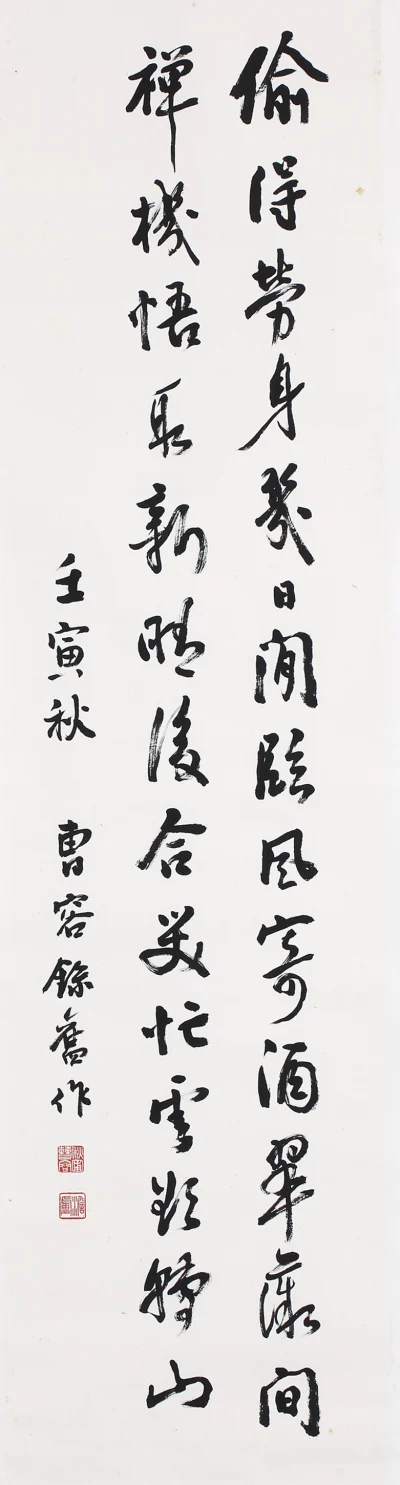 偷得勞身幾日閒臨風寄酒翠微間
禪機悟取新晴後合笑忙雲欲轉山
壬寅秋 曹容錄舊作